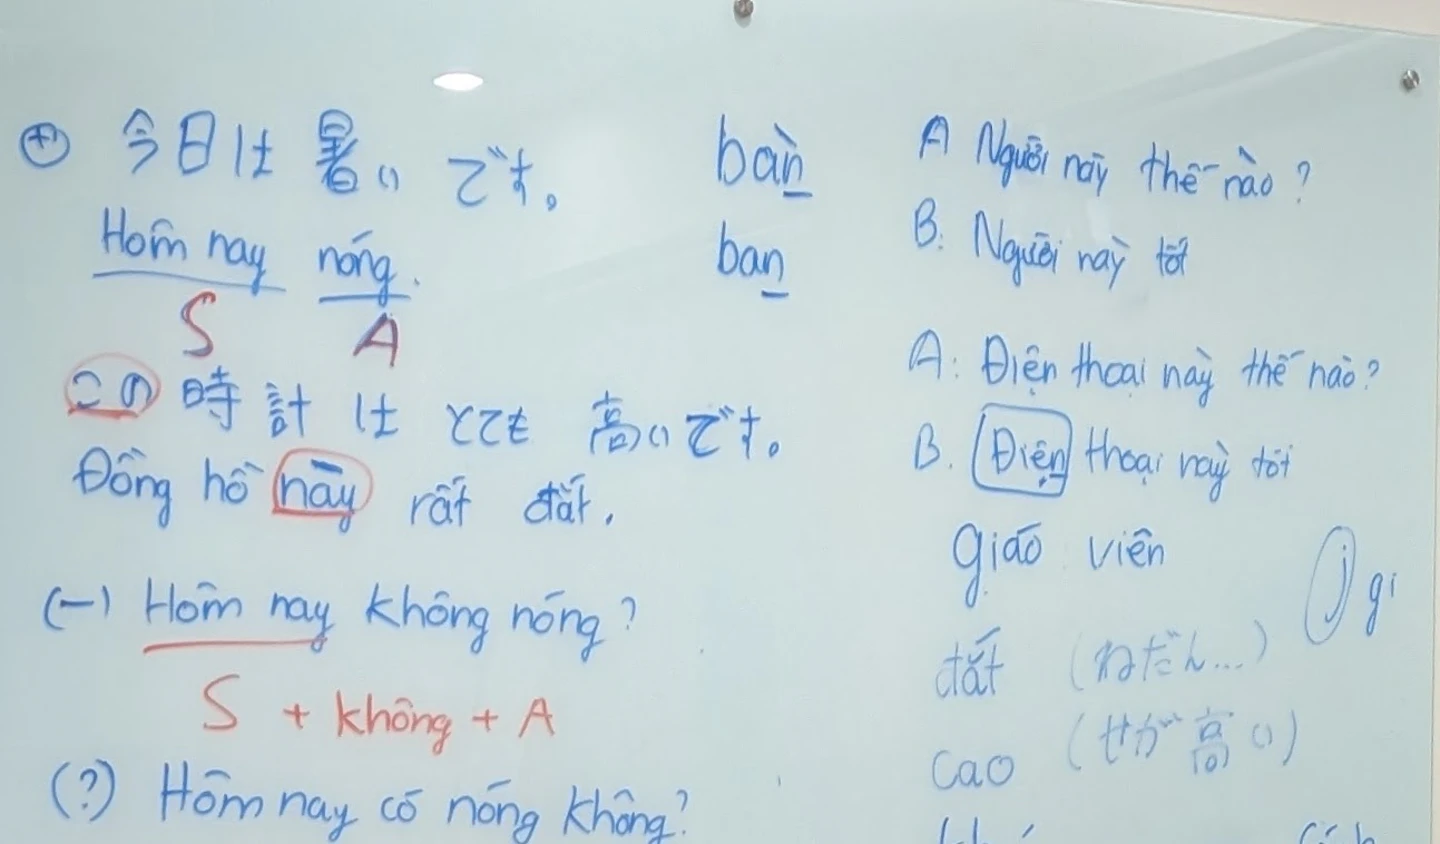 (+) 今日は 暑い です。
Hôm nay nóng.
S A
この 時計 は とても 高いです。
Đồng hồ này rất đắt.
(-) Hôm nay không nóng?
S + không + A
(?) Hôm nay có nóng không?
bàn
bạn
A Người này thế nào?
B. Người này tốt
A: Điện thoại này thế nào?
B. Điện thoại này tốt
giáo viên
j gi
đắt (ねだん...)
cao (せが高い)